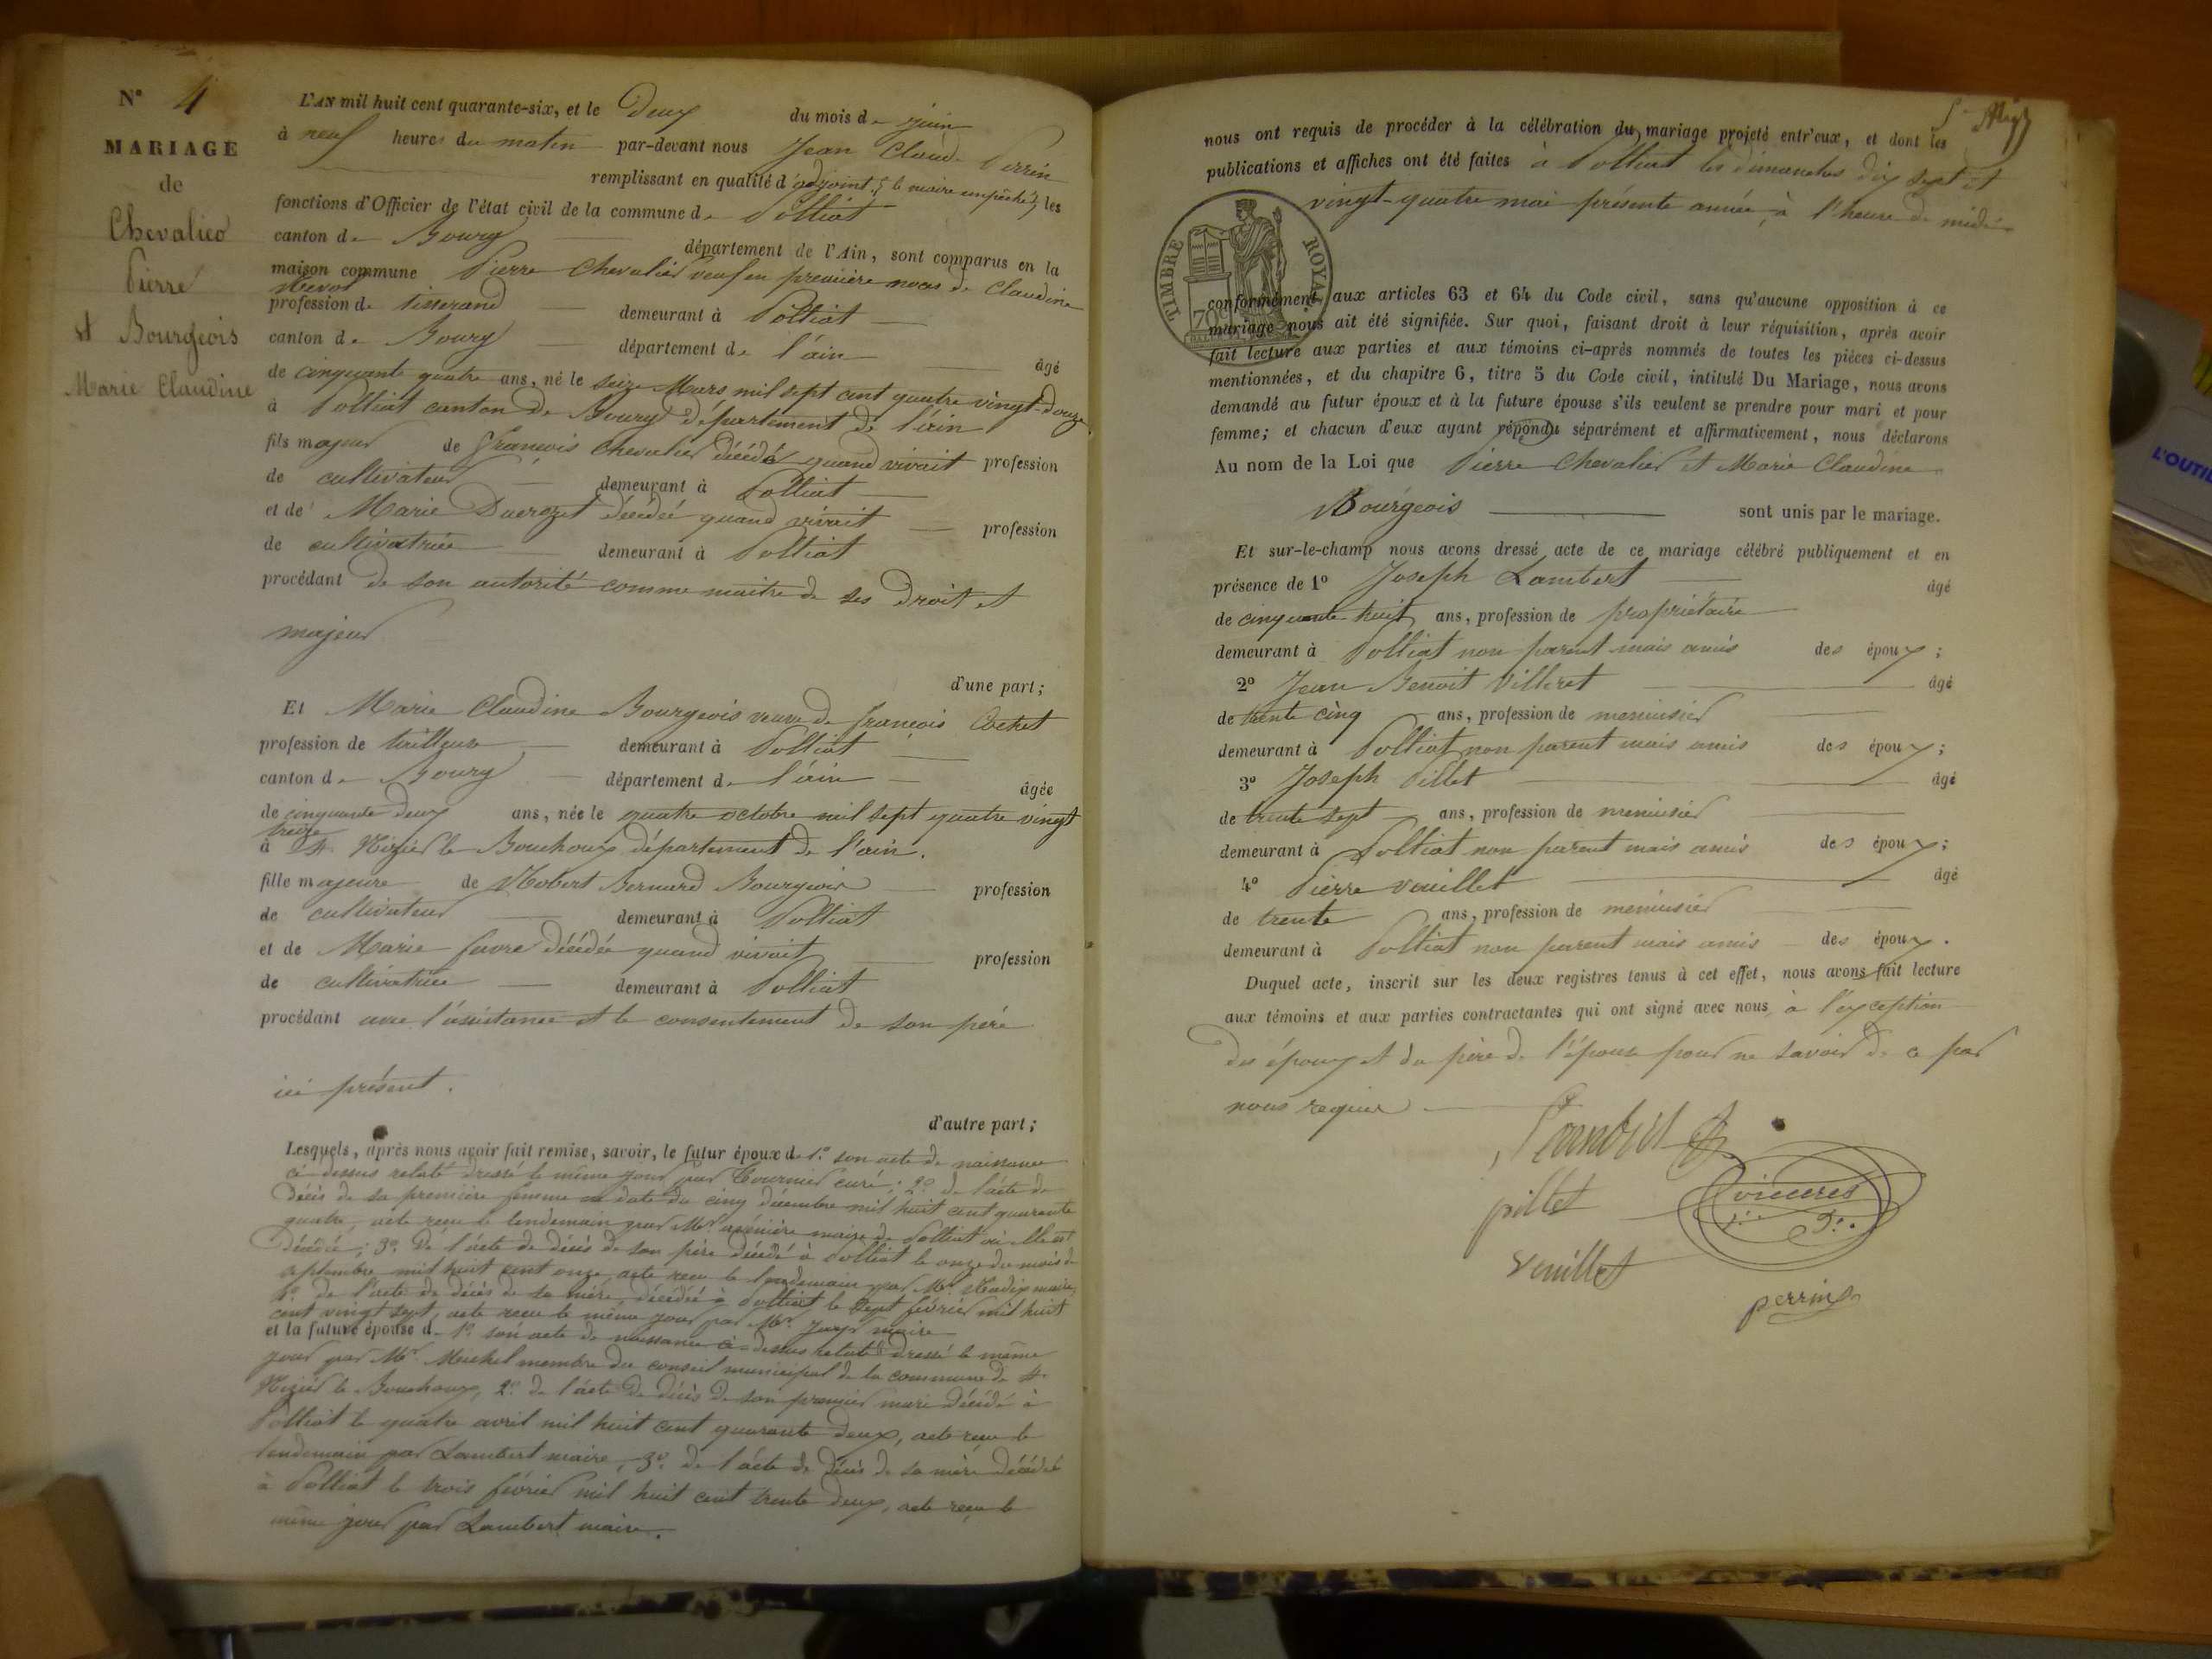 N° 4
MARIAGE
de
Chevalier
Pierre
et Bourgeois
Marie Claudine
L'AN mil huit cent quarante-six, et le Deux du mois de juin
à neuf heures du matin par-devant nous Jean Claude Perrin
remplissant en qualité d'adjoint, le maire empêché, les
fonctions d'Officier de l'état civil de la commune de Polliat
canton de Bourg département de l'Ain, sont comparus en la
maison commune Pierre Chevalier veuf en première noces de Claudine
profession de tisserand demeurant à Polliat
canton de Bourg département de l'ain âgé
de cinquante quatre ans, né le seize Mars mil sept cent quatre vingt-douze
à Polliat canton de Bourg département de l'ain
fils majeur de François Chevalier décédé quand vivait profession
de cultivateur demeurant à Polliat
et de Marie Ducrozet décédée quand vivait profession
de cultivatrice demeurant à Polliat
procédant de son autorité comme maitre de ses droit et
majeur
d'une part;
Et Marie Claudine Bourgeois veuve de françois
profession de tailleuse demeurant à Polliat
canton de Bourg département de l'ain âgée
de cinquante deux ans, née le quatre octobre mil sept quatre vingt
treize
à St. Nizier le Bouchoux département de l'ain.
fille majeure de Bernard Bourgeois profession
de cultivateur demeurant à Polliat
et de Marie favre décédée quand vivait profession
de cultivatrice demeurant à Polliat
procédant avec l'assistance et le consentement de son père
ici présent.
d'autre part;
Lesquels, après nous avoir fait remise, savoir, le futur époux de 1.° son acte de naissance
ci-dessus relaté dressé le même jour par Tournier curé; 2.° de l'acte de
décès de sa première femme en date du cinq décembre mil huit cent quarante
quatre, acte reçu le lendemain par Mr. maire de Polliat où elle est
décédée; 3.° De l'acte de décès de son père décédé à Polliat le onze du mois de
septembre mil huit cent onze acte reçu le lendemain par Mr. maire,
4.° de l'acte de décès de sa mère décédée à Polliat le sept février mil huit
cent vingt sept, acte reçu le même jour par Mr. maire
et la future épouse de 1.° son acte de naissance ci-dessus relaté dressé le même
jour par Mr. Michel membre du conseil municipal de la commune de St.
Nizier le Bouchoux, 2.° de l'acte de décès de son premier mari décédé à
Polliat le quatre avril mil huit cent quarante deux, acte reçu le
lendemain par Lambert maire, 3.° de l'acte de décès de sa mère décédée
à Polliat le trois février mil huit cent trente deux, acte reçu le
même jour par Lambert maire.
nous ont requis de procéder à la célébration du mariage projeté entr'eux, et dont les
publications et affiches ont été faites à Polliat les dimanches dix sept et
vingt-quatre mai présente année, à l'heure de midi
TIMBRE ROYAL
conformément aux articles 63 et 64 du Code civil, sans qu'aucune opposition à ce
mariage nous ait été signifiée. Sur quoi, faisant droit à leur réquisition, après avoir
fait lecture aux parties et aux témoins ci-après nommés de toutes les pièces ci-dessus
mentionnées, et du chapitre 6, titre 5 du Code civil, intitulé Du Mariage, nous avons
demandé au futur époux et à la future épouse s'ils veulent se prendre pour mari et pour
femme; et chacun d'eux ayant répondu séparément et affirmativement, nous déclarons
Au nom de la Loi que Pierre Chevalier et Marie Claudine
Bourgeois sont unis par le mariage.
Et sur-le-champ nous avons dressé acte de ce mariage célébré publiquement et en
présence de 1° Joseph Lambert âgé
de cinquante-huit ans, profession de propriétaire
demeurant à Polliat non parent mais amis des époux;
2° Jean Benoit Villeret âgé
de trente cinq ans, profession de menuisier
demeurant à Polliat non parent mais amis des époux;
3° Joseph Pillet âgé
de trente sept ans, profession de menuisier
demeurant à Polliat non parent mais amis des époux;
4° Pierre vuillet âgé
de trente ans, profession de menuisier
demeurant à Polliat non parent mais amis des époux.
Duquel acte, inscrit sur les deux registres tenus à cet effet, nous avons fait lecture
aux témoins et aux parties contractantes qui ont signé avec nous, à l'exception
des époux et du père de l'épouse pour ne savoir de ce par
nous requis
Lambert
pillet
vuillet
perrin
L'OUTIL